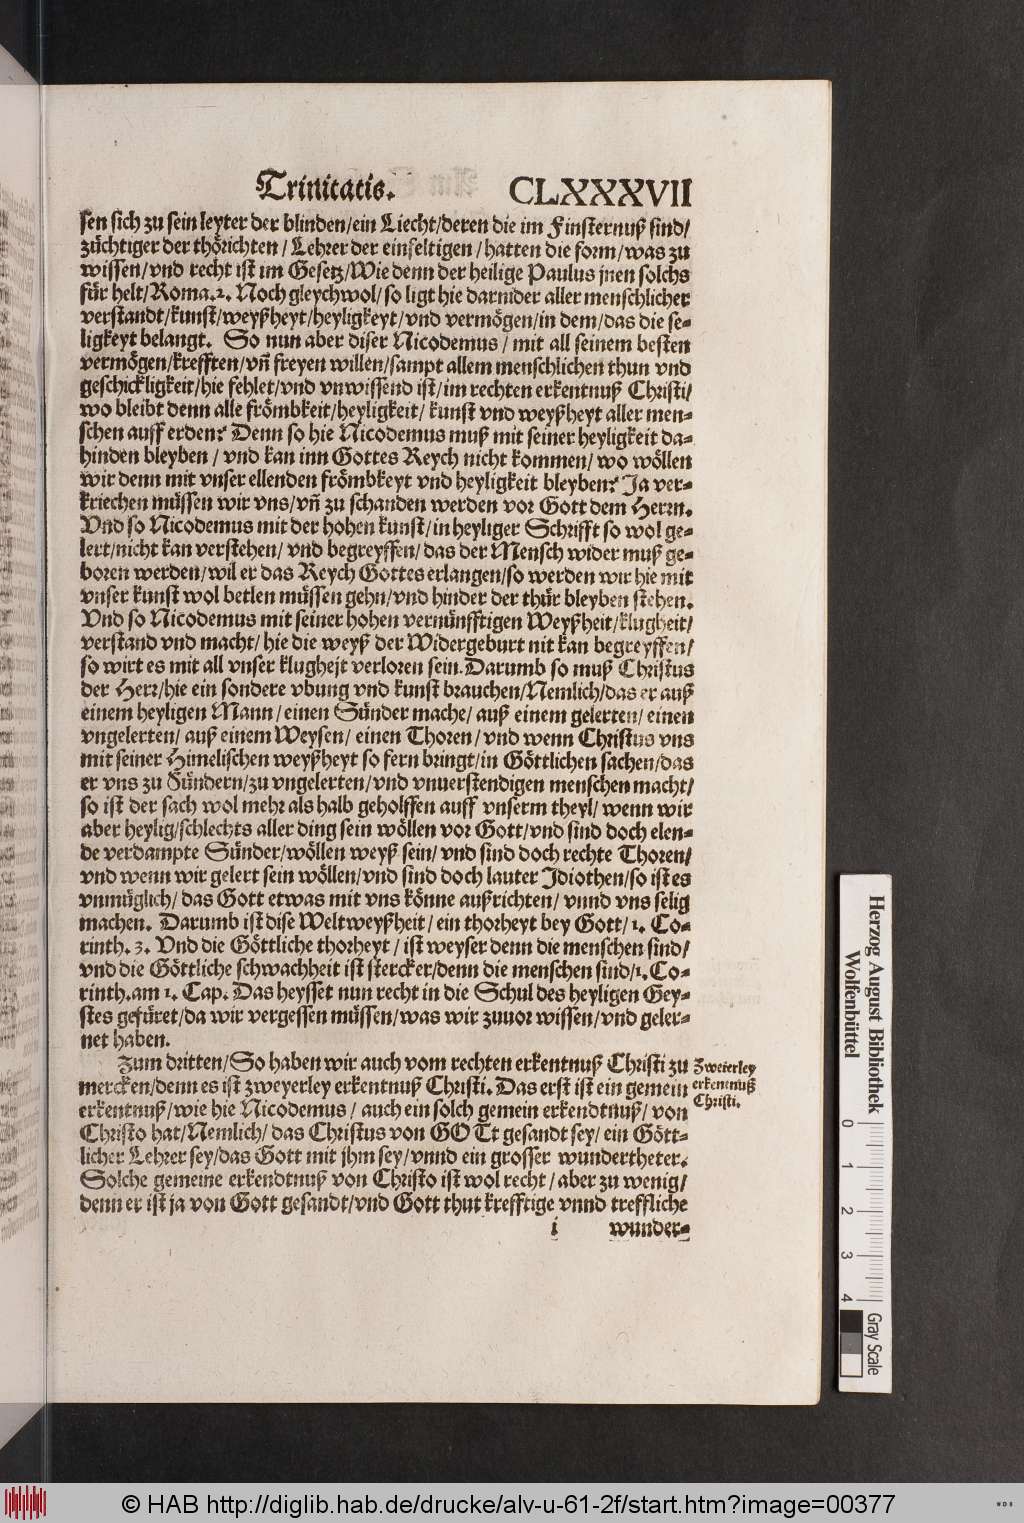 Trinitatis. CLXXXVII
sen sich zu sein leyter der blinden/ein Liecht/deren die im Finsternuß sind/
züchtiger der thörichten/Lehrer der einfeltigen/hatten die form/was zu
wissen/vnd recht ist im Gesetz/Wie denn der heilige Paulus jnen solchs
für helt/Roma.2. Noch gleychwol/so ligt hie darnider aller menschlicher
verstandt/kunst/weyßheyt/heyligkeyt/vnd vermögen/in dem/das die se-
ligkeyt belangt. So nun aber diser Nicodemus/mit all seinem besten
vermögen/krefften/vñ freyen willen/sampt allem menschlichen thun vnd
geschickligkeit/hie fehlet/vnd vnwissend ist/im rechten erkentnuß Christi/
wo bleibt denn alle frömbkeit/heyligkeit/kunst vnd weyßheyt aller men-
schen auff erden? Denn so hie Nicodemus muß mit seiner heyligkeit da-
hinden bleyben/vnd kan inn Gottes Reych nicht kommen/wo wöllen
wir denn mit vnser ellenden frömbkeyt vnd heyligkeit bleyben? Ja ver-
kriechen müssen wir vns/vñ zu schanden werden vor Gott dem Herrn.
Vnd so Nicodemus mit der hohen kunst/in heyliger Schrifft so wol ge-
lert/nicht kan verstehen/vnd begreyffen/das der Mensch wider muß ge-
boren werden/wil er das Reych Gottes erlangen/so werden wir hie mit
vnser kunst wol betlen müssen gehn/vnd hinder der thür bleyben stehen.
Vnd so Nicodemus mit seiner hohen vernünfftigen Weyßheit/klugheit/
verstand vnd macht/hie die weyß der Widergeburt nit kan begreyffen/
so wirt es mit all vnser klugheit verloren sein. Darumb so muß Christus
der Herr/hie ein sondere vbung vnd kunst brauchen/Nemlich/das er auß
einem heyligen Mann/einen Sünder mache/auß einem gelerten/einen
vngelerten/auß einem Weysen/einen Thoren/vnd wenn Christus vns
mit seiner Himelischen weyßheyt so fern bringt/in Göttlichen sachen/das
er vns zu Sündern/zu vngelerten/vnd vnuerstendigen menschen macht/
so ist der sach wol mehr als halb geholffen auff vnserm theyl/wenn wir
aber heylig/schlechts aller ding sein wöllen vor Gott/vnd sind doch elen-
de verdampte Sünder/wöllen weyß sein/vnd sind doch rechte Thoren/
vnd wenn wir gelert sein wöllen/vnd sind doch lauter Idiothen/so ist es
vnmüglich/das Gott etwas mit vns könne außrichten/vnnd vns selig
machen. Darumb ist dise Weltweyßheit/ein thorheyt bey Gott/1. Co-
rinth. 3. Vnd die Göttliche thorheyt/ist weyser denn die menschen sind/
vnd die Göttliche schwachheit ist stercker/denn die menschen sind/1. Co-
rinth. am 1. Cap. Das heysset nun recht in die Schul des heyligen Gey-
stes gefüret/da wir vergessen müssen/was wir zuuor wissen/vnd geler-
net haben.
Zum dritten/So haben wir auch vom rechten erkentnuß Christi zu
mercken/denn es ist zweyerley erkentnuß Christi. Das erst ist ein gemein
erkentnuß/wie hie Nicodemus/auch ein solch gemein erkendtnuß/von
Christo hat/Nemlich/das Christus von GOTt gesandt sey/ein Gött-
licher Lehrer sey/das Gott mit jhm sey/vnnd ein grosser wundertheter.
Solche gemeine erkendtnuß von Christo ist wol recht/aber zu wenig/
denn er ist ja von Gott gesandt/vnd Gott thut krefftige vnnd treffliche
i wunder-
Zweierley
erkentnuß
Christi.
Herzog August Bibliothek
Wolfenbüttel
0 1 2 3 4
Gray Scale
© HAB http://diglib.hab.de/drucke/alv-u-61-2f/start.htm?image=00377